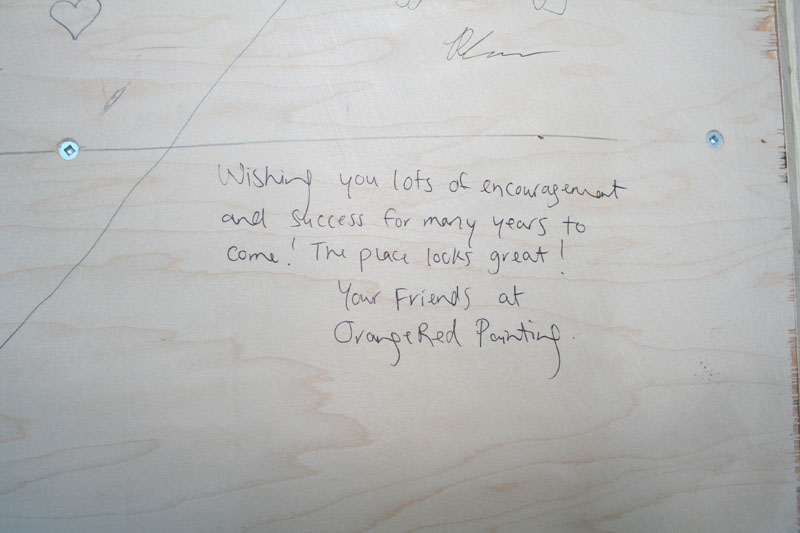 Wishing you lots of encouragement
and success for many years to
come! The place looks great!
Your Friends at
OrangeRed Painting.